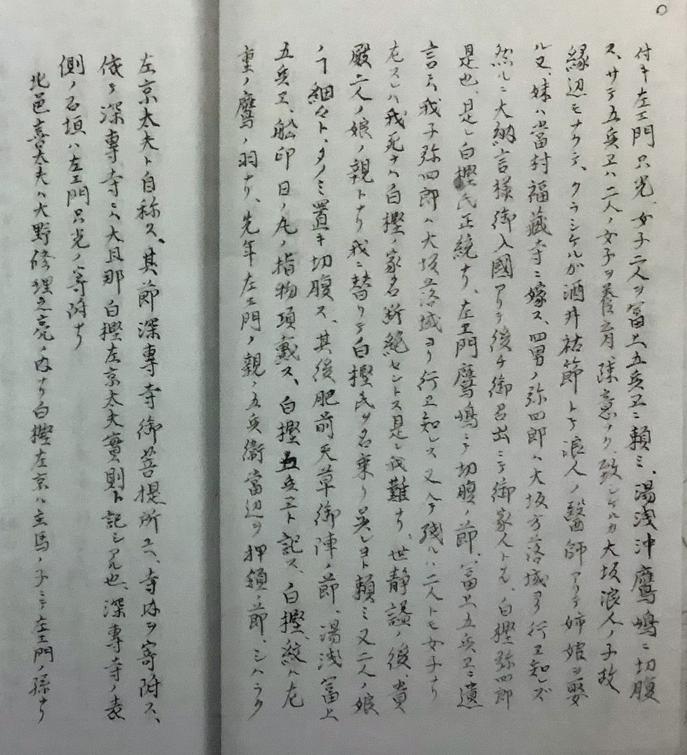 付キ左エ門只光、女子二人ヲ冨上五兵卫ニ頼ミ、湯浅沖鷹嶋ニ切腹
ス、サテ五兵卫ハ二人ノ女子ヲ養育疎意ナク致シケルカ大坂浪人ノ子故
縁辺モナクテ、クラシケルガ酒井祐節トテ浪人ノ醫師アリテ姉娘ヲ娶
ル又、妹ハ當村福藏寺ニ嫁ス、四男ノ弥四郎ハ大坂方落城ヨリ行卫知レズ
然ルニ大納言様御入國アリテ後チ御召出ニテ御家人トナル、白樫弥四郎
是也、是レ白樫氏正統ナリ、左エ門鷹嶋ニテ切腹ノ節、冨上五兵卫ニ遺
言ニ我子弥四郎ハ大坂落城ヨリ行卫知レス又今残ルハ二人トモ女子ナリ
左スレハ我死ナハ白樫ノ家名断絶セントス是レ武難ナリ、世静謐ノ後、貴
殿二人ノ娘ノ親トナリ我ニ替リテ白樫氏ヲ名乗リ呉レヨト頼ミ又二人ノ娘
ノ丁細々ト、タノミ置キ切腹ス、其後肥前天草御陣ノ節、湯浅冨上
五兵卫、舩印日ノ丸ノ指物頂戴ス、白樫五兵卫ト記ス、白樫紋ハ丸ニ
重ノ鷹ノ羽ナリ、先年左エ門ノ親ノ五兵衛當辺ヲ押領ノ節、シハラク
左京太夫ト自称ス、其節深専寺御菩提所ユヘ、寺内ヲ寄附ス、
依テ深専寺ニハ大旦那白樫左京太夫實則ト記シアル也、深専寺ノ表
側ノ石垣ハ左エ門只光ノ寄附ナリ
北邑喜太夫ハ大野修理之亮ノ内ナリ白樫左京ハ主馬ノ子ニテ左エ門ノ孫ナリ